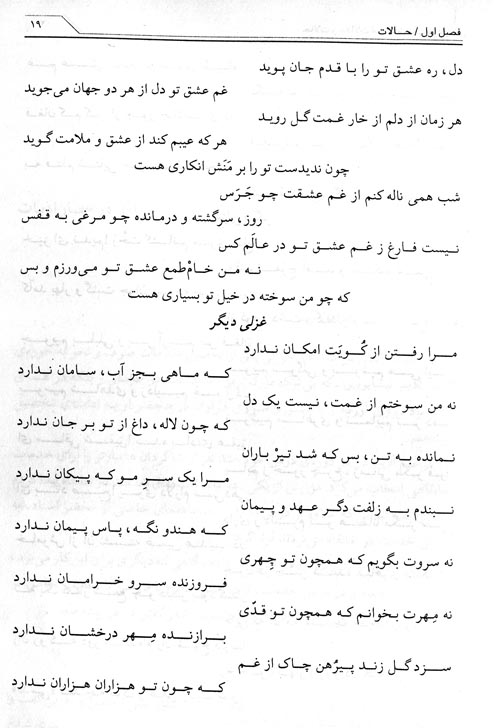 فصل اول / حـالات
۱۹
دل، ره عشق تو را با قدم جان پوید
غم عشق تو دل از هر دو جهان می‌جوید
هر زمان از دلم از خار غمت گل روید
هر که عیبم کند از عشق و ملامت گوید
چون ندیدست تو را بر مَنَش انکاری هست
شب همی ناله کنم از غم عشقت چو جَرَس
روز، سرگشته و درمانده چو مرغی به قفس
نیست فارغ ز غم عشق تو در عالَم کس
نه من خامْ‌طمع عشق تو می‌ورزم و بس
که چو من سوخته در خیل تو بسیاری هست
غزلی دیگر
مرا رفتن از کُویَت امکان ندارد
که ماهی بجز آب، سامان ندارد
نه من سوختم از غمت، نیست یک دل
که چون لاله، داغ از تو بر جان ندارد
نمانده به تن، بس که شد تیرْ باران
مرا یک سرِ مو که پیکان ندارد
نبندم به زلفت دگر عهد و پیمان
که هندو نگه، پاس پیمان ندارد
نه سروت بگویم که همچون تو چِهری
فروزنده سرو خرامان ندارد
نه مِهرت بخوانم که همچون تو قدّی
برازنده مِهر درخشان ندارد
سزد گل زند پیرْهن چاک از غم
که چون تو هزاران هزاران ندارد